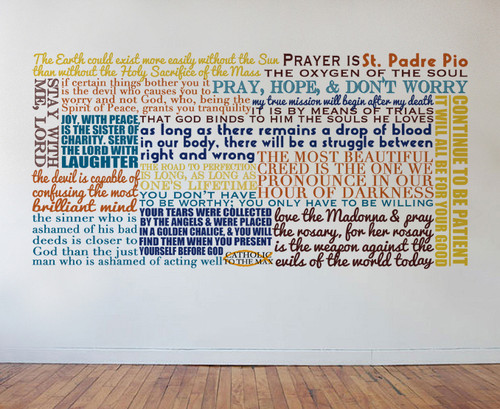 The Earth could exist more easily without the Sun
than without the Holy Sacrifice of the Mass
PRAYER IS
St. Padre Pio
THE OXYGEN OF THE SOUL
STAY WITH
ME, LORD
if certain things bother you it
is the devil who causes you to
worry and not God, who, being the
Spirit of Peace, grants you tranquility
PRAY, HOPE, & DON'T WORRY
my true mission will begin after my death
IT IS BY MEANS OF TRIALS
THAT GOD BINDS TO HIM THE SOULS HE LOVES
CONTINUE TO BE PATIENT
IT WILL ALL BE FOR YOUR GOOD
JOY, WITH PEACE,
IS THE SISTER OF
CHARITY. SERVE
THE LORD WITH
LAUGHTER
as long as there remains a drop of blood
in our body, there will be a struggle between
right and wrong
THE MOST BEAUTIFUL
CREED IS THE ONE WE
PRONOUNCE IN OUR
HOUR OF DARKNESS
THE ROAD TO PERFECTION
IS LONG, AS LONG AS
ONE'S LIFETIME
the devil is capable of
confusing the most
brilliant mind
YOU DON'T HAVE
TO BE WORTHY; YOU ONLY HAVE TO BE WILLING
the sinner who is
ashamed of his bad
deeds is closer to
God than the just
man who is ashamed of acting well
YOUR TEARS WERE COLLECTED
BY THE ANGELS & WERE PLACED
IN A GOLDEN CHALICE, & YOU WILL
FIND THEM WHEN YOU PRESENT
YOURSELF BEFORE GOD
CATHOLIC
TO THE MAX
love the Madonna & pray
the rosary, for her rosary
is the weapon against the
evils of the world today